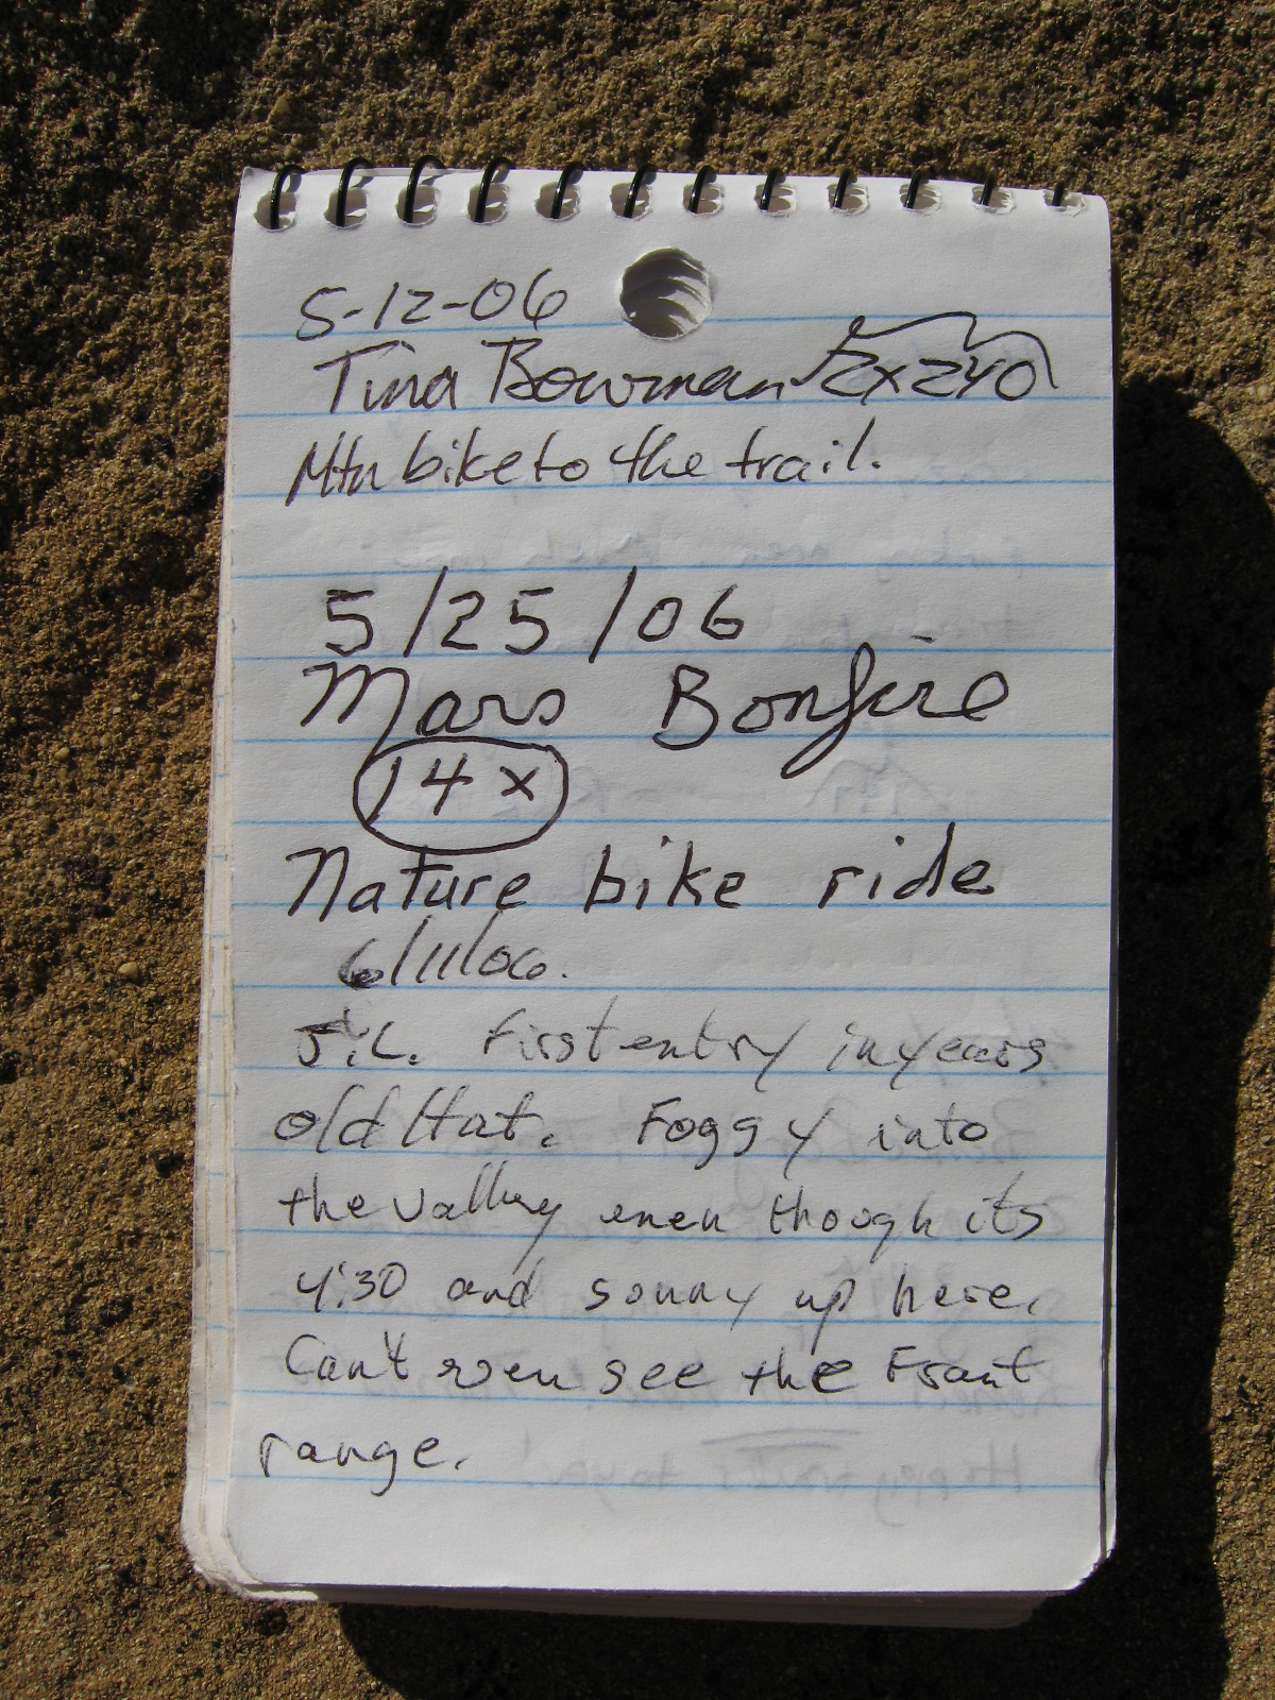 5-12-06
Tina Bowman 2x240
Mtn bike to the trail.
5/25/06
Mars Bonfire
14x
Nature bike ride
6/11/06.
J.L. First entry in years
old Hat. Foggy into
the valley even though its
4:30 and sunny up here.
Can't even see the Front
range.